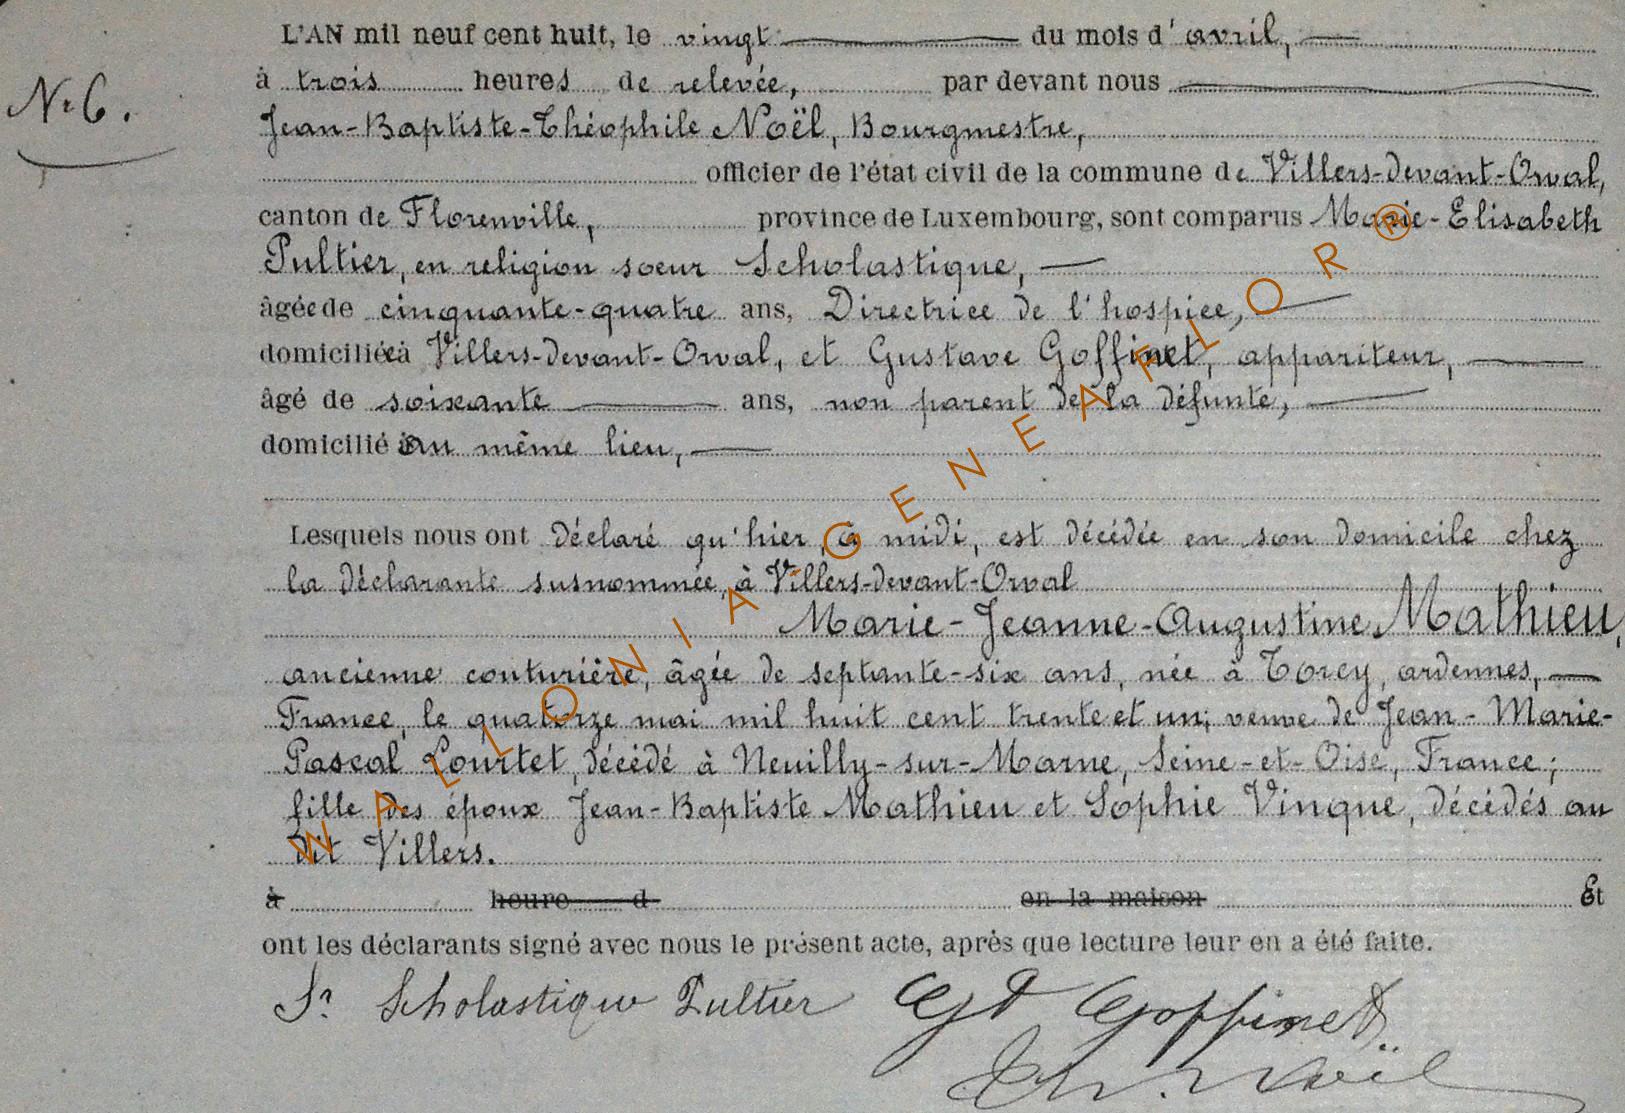 L'AN mil neuf cent huit, le vingt du mois d'avril,
N° 6.
à trois heures de relevée, par devant nous
Jean-Baptiste-Théophile Noël, Bourgmestre,
officier de l'état civil de la commune de Villers-devant-Orval,
canton de Florenville, province de Luxembourg, sont comparus Marie-Elisabeth
Pultier, en religion soeur Scholastique,
âgée de cinquante-quatre ans, Directrice de l'hospice,
domiciliée à Villers-devant-Orval, et Gustave Goffinet, appariteur,
âgé de soixante ans, non parent de la défunte,
domicilié au même lieu,
Lesquels nous ont déclaré qu'hier, à midi, est décédée en son domicile chez
la déclarante susnommée, à Villers-devant-Orval
Marie-Jeanne-Augustine Mathieu,
ancienne couturière, âgée de septante-six ans, née à Torcy, ardennes,
France, le quatorze mai mil huit cent trente et un; veuve de Jean-Marie-
Pascal Lourtet, décédé à Neuilly-sur-Marne, Seine-et-Oise, France;
fille des époux Jean-Baptiste Mathieu et Sophie Vinque, décédés au
dit Villers.
à heure d en la maison Et
ont les déclarants signé avec nous le présent acte, après que lecture leur en a été faite.
Sr Scholastique Pultier Gt Goffinet
Th. Noël
WALLONIA-GENEAFLOR®